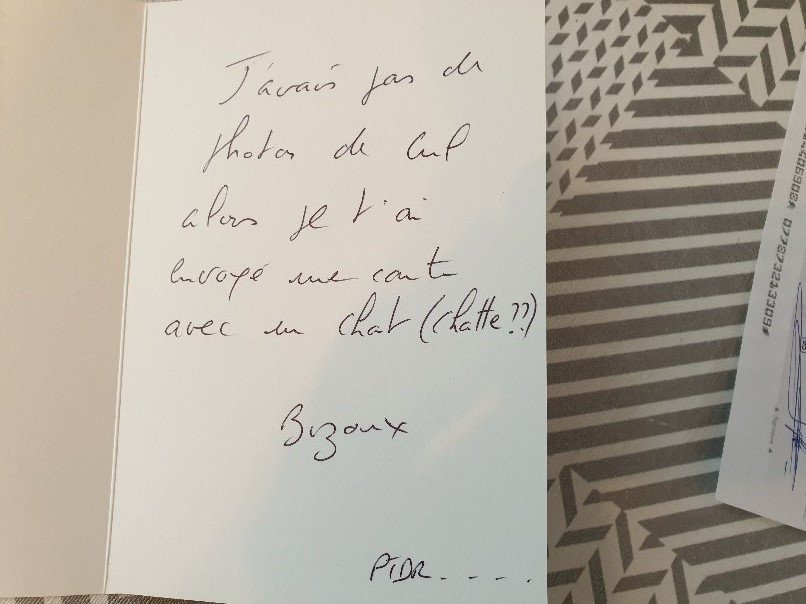 J'avais pas de
photos de cul
alors je t'ai
envoyé une carte
avec un chat (chatte??)
Bizoux
PTDR - - - .